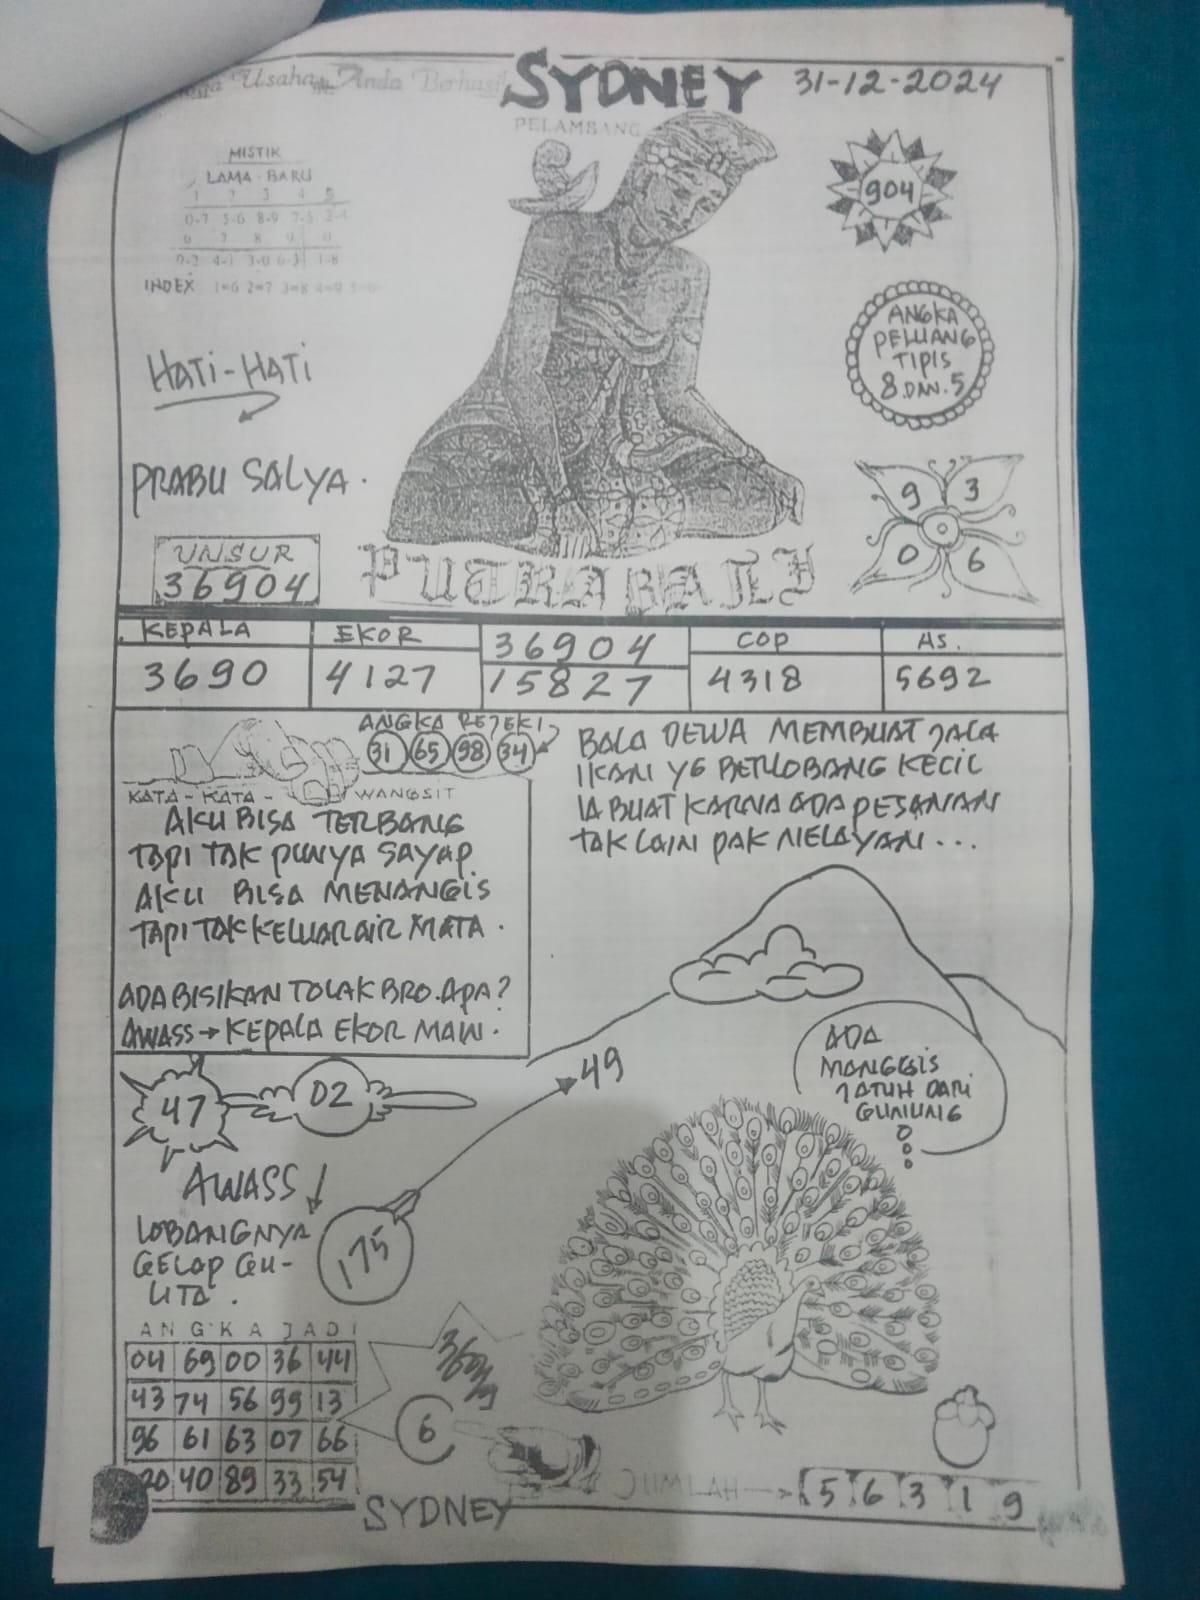 Usaha Anda Berhasil
SYDNEY
31-12-2024
PELAMBANG
MISTIK
LAMA - BARU
1 2 3 4 5
0-7 5-6 8-9 7-5 2-4
6 7 8 9 0
9-2 4-1 3-0 6-3 1-8
INDEX 1=6 2=7 3=8 4=9 5=0
904
HATI-HATI
ANGKA
PELUANG
TIPIS
8 DAN 5
PRABU SALYA.
9 3
0 6
UNSUR
36904
PUTRA BALI
KEPALA EKOR 36904 COP AS.
3690 4127 15827 4318 5692
ANGKA REJEKI
31 65 98 34
KATA - KATA - WANGSIT
AKU BISA TERBANG
TAPI TAK PUNYA SAYAP.
AKU BISA MENANGIS
TAPI TAK KELUAR AIR MATA.
ADA BISIKAN TOLAK BRO. APA?
AWASS → KEPALA EKOR MAW.
BALA DEWA MEMBUAT JALA
IKAN YG BERLOBANG KECIL
IA BUAT KARNA ADA PESANAN
TAK LAIN PAK NELAYAN...
ADA
MANGGIS
JATUH DARI
GUNUNG
47
02
49
AWASS
LOBANGNYA
GELAP GU-
LITA.
175
ANGKA JADI
04 69 00 36 44
43 74 56 99 13
96 61 63 07 66
20 40 89 33 54
6
JUMLAH → 5 6 3 1 9
SYDNEY